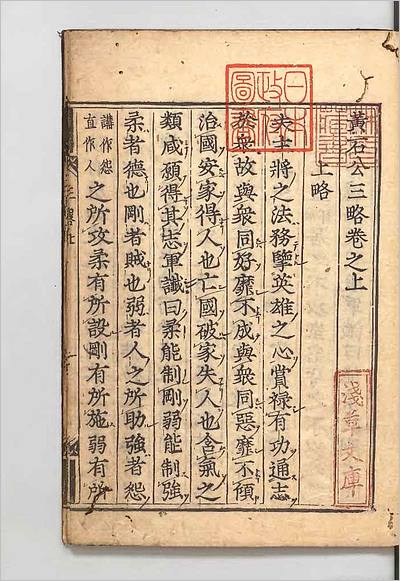 黄石公三略卷之上
上略
夫主將之法務擥英雄之心賞祿有功通志
於衆故與衆同好靡不成與衆同惡靡不傾
治國安家得人也亡國破家失人也含氣之
類咸願得其志軍讖曰柔能制剛弱能制強
柔者德也剛者賊也弱者人之所助強者怨
講作怨
直作人
之所攻柔有所設剛有所施弱有所
淺草文庫
日本
政府
圖書